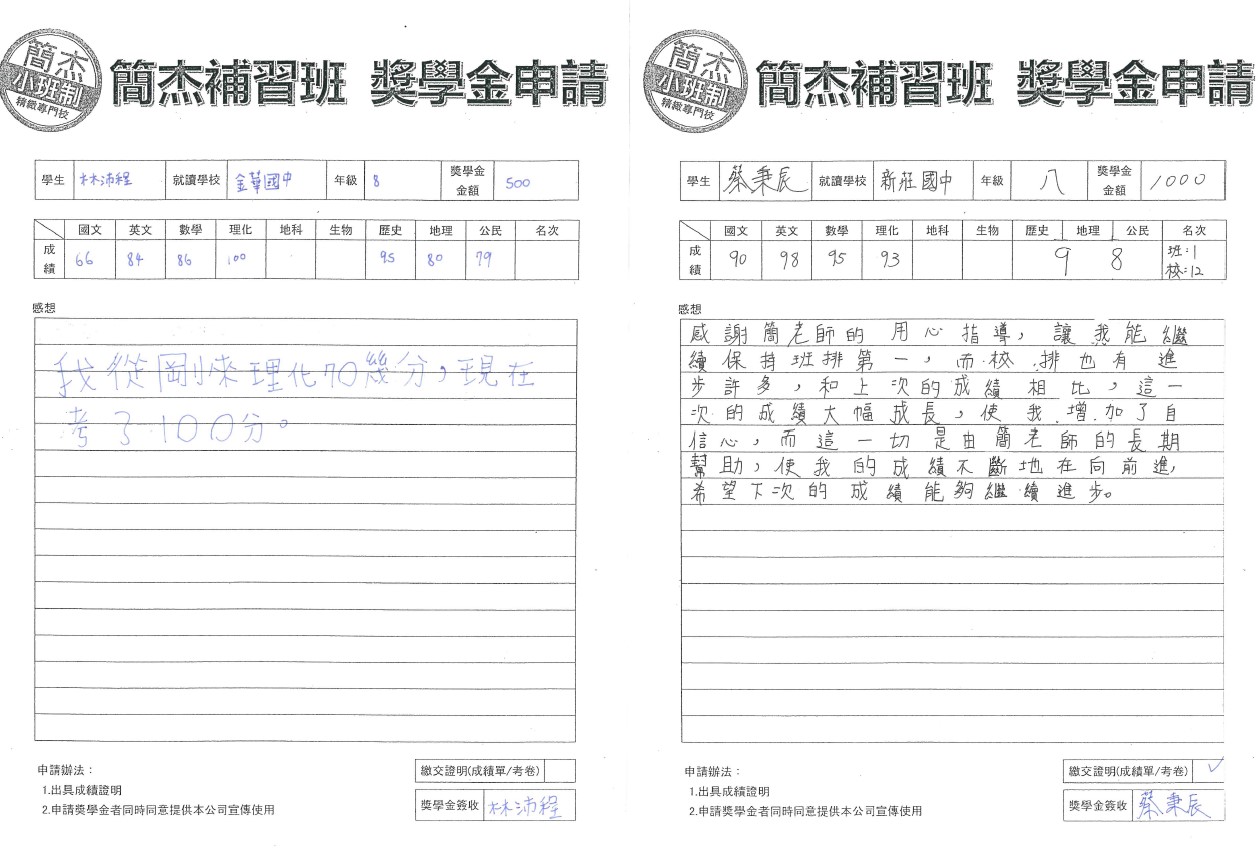 簡杰
小班制
精緻專門校
簡杰補習班 獎學金申請
學生 林沛程 就讀學校 金華國中 年級 8 獎學金金額 500
國文 英文 數學 理化 地科 生物 歷史 地理 公民 名次
成績 66 84 86 100 95 80 79
感想
我從剛來理化70幾分,現在
考了100分。
申請辦法:
1.出具成績證明
2.申請獎學金者同時同意提供本公司宣傳使用
繳交證明(成績單/考卷)
獎學金簽收 林沛程
簡杰
小班制
精緻專門校
簡杰補習班 獎學金申請
學生 蔡秉辰 就讀學校 新莊國中 年級 八 獎學金金額 1000
國文 英文 數學 理化 地科 生物 歷史 地理 公民 名次
成績 90 98 95 93 98 班:1
校:12
感想
感謝簡老師的用心指導,讓我能繼
續保持班排第一,而校排也有進
步許多,和上次的成績相比,這一
次的成績大幅成長,使我增加了自
信心,而這一切是由簡老師的長期
幫助,使我的成績不斷地在向前進,
希望下次的成績能夠繼續進步。
申請辦法:
1.出具成績證明
2.申請獎學金者同時同意提供本公司宣傳使用
繳交證明(成績單/考卷) ✓
獎學金簽收 蔡秉辰